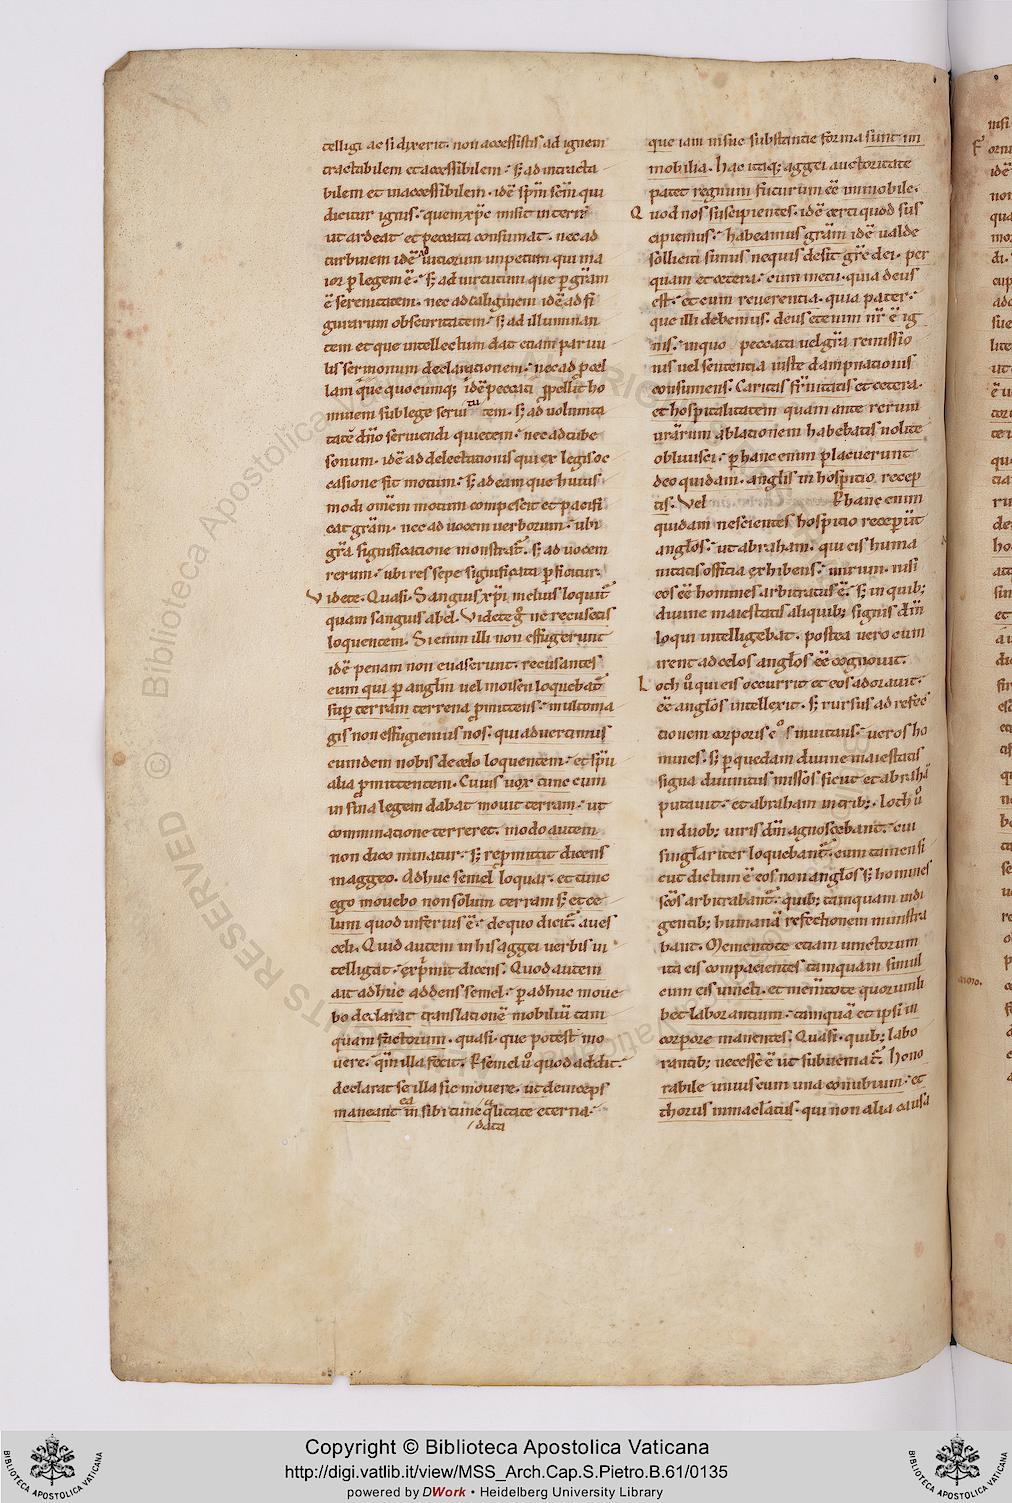 telligi ac si dixerit. non accessistis ad ignem
tractabilem et accessibilem. sꝫ ad intracta
bilem et inaccessibilem. idē spm̄ scm̄ qui
dicitur ignis. quem xp̄c misit in terrā
ut ardeat et peccata consumat. nec ad
turbinem idē ad uiciorum impetum qui ma
ior ꝑ legem ē. sꝫ ad uirtutum que ꝑ gr̄am
ē serenitatem. nec ad caliginem idē ad fi
gurarum obscuritatem. sꝫ ad illuminan
tem et que intellectum dat etiam paruu
lis sermonum declarationem. nec ad ꝓcel
lam que quocumqꝫ idē peccati ꝓpellit ho
minem sub lege seruitutem. sꝫ ad uolunta
tatē dn̄o seruiendi quietem. nec ad tube
sonum. idē ad delectationis qui ex legis oc
casione fit motum. sꝫ ad eam que huius
modi om̄em motum compescit et pacifi
cat gr̄am. nec ad uocem uerborum. ubi
gr̄a significatione monstrat̄. sꝫ ad uocem
rerum. ubi res sepe significata ꝑficitur.
Videte. Quasi. Sanguis xp̄i melius loquit̄
quam sanguis abel. Videte gͦ ne recusetis
loquentem. Si enim illi non effugerunt
idē penam non euaserunt. recusantes
eum qui ꝑ angl̄m uel moisen loquebat̄
sup̄ terram terrena ꝓmittens. multo ma
gis non effugiemus nos. qui aduertimus
eumdem nobis de celo loquentem. et sp̄u
alia ꝓmittentem. Cuius uox tunc cum
in sina legem dabat mouit terram. ut
comminatione terreret. modo autem
non dico minatur. sꝫ repmittit dicens
maggeo. Adhuc semel loquar. et tunc
ego mouebo non solum terram sꝫ et ce
lum quod inferius ē. de quo dicit̄ aues
celi. Quid autem in his aggei uerbis in
telligat. exp̄mit dicens. Quod autem
ait adhuc addens semel. ꝑ adhuc moue
bo declarat translationē mobiliū tam
quam factorum. quasi. que potest mo
uere. qm̄ illa fecit. semel u̾ quod addit.
declarat se illa sic mouere. ut deinceps
maneant in sibi tunc qualitate eterna.
data
que iam in sue substantie forma sunt im
mobilia. hac itaqꝫ aggei auctoritate
patet regnum futurum eē immobile.
Quod nos suscipientes. idē certi quod sus
cipiemus. habeamus gr̄am idē ualde
solliciti simus ne quis desit gr̄e dei. per
quam et cetera. cum metu. quia deus
est. et cum reuerentia. quia pater.
que illi debemus. deus etenim nr̄ ē ig
nis. in quo peccata uel gr̄a remissio
nis uel sententia iuste dampnationis
consumens. Caritas fr̄nitatis et cetera.
et hospitalitatem quam ante rerum
urārum ablationem habebatis nolite
obliuisci. ꝑ hanc enim placuerunt
deo quidam. anglis in hospitio recep
tis. Vel hanc enim
quidam nescientes hospitio receꝑūt
anglos. ut abraham. qui eis huma
nitatis officia exhibens. mirum. nisi
eos eē homines arbitratus ē. sꝫ in quibꝫ
diuine maiestatis aliquibꝫ signis dm̄
loqui intelligebat. postea uero cum
irent ad celos anglos eē cognouit.
Loth u̾ qui eis occurrit et eos adorauit.
eē anglos intellexit. sꝫ rursus ad refec
tionem corporis eos inuitans. ueros ho
mines. sꝫ ꝑ quedam diuine maiestatis
signa diuinitus missos sicut et abrahā
putauit. et abraham in tribꝫ. loth u̾
in duobꝫ uiris dm̄ agnoscebant. cui
singlariter loquebant̄. cum tamen si
cut dictum ē eos non anglos sꝫ homines
sc̄os arbitrabant̄. quibꝫ tamquam indi
gentibꝫ humanā refectionem ministra
bant. Mementote etiam uinctorum
ita eis compacientes tamquam simul
cum eis uincti. et mem̄tote quorumli
bet laborantium. tamquā et ipsi in
corpore manentes. Quasi. quibꝫ labo
rantibꝫ necesse ē ut subueniat̄. hono
rabile unius cum una conubium. et
thorus inmaclatus. qui non alia causa
Copyright © Biblioteca Apostolica Vaticana
http://digi.vatlib.it/view/MSS_Arch.Cap.S.Pietro.B.61/0135
powered by DWork • Heidelberg University Library